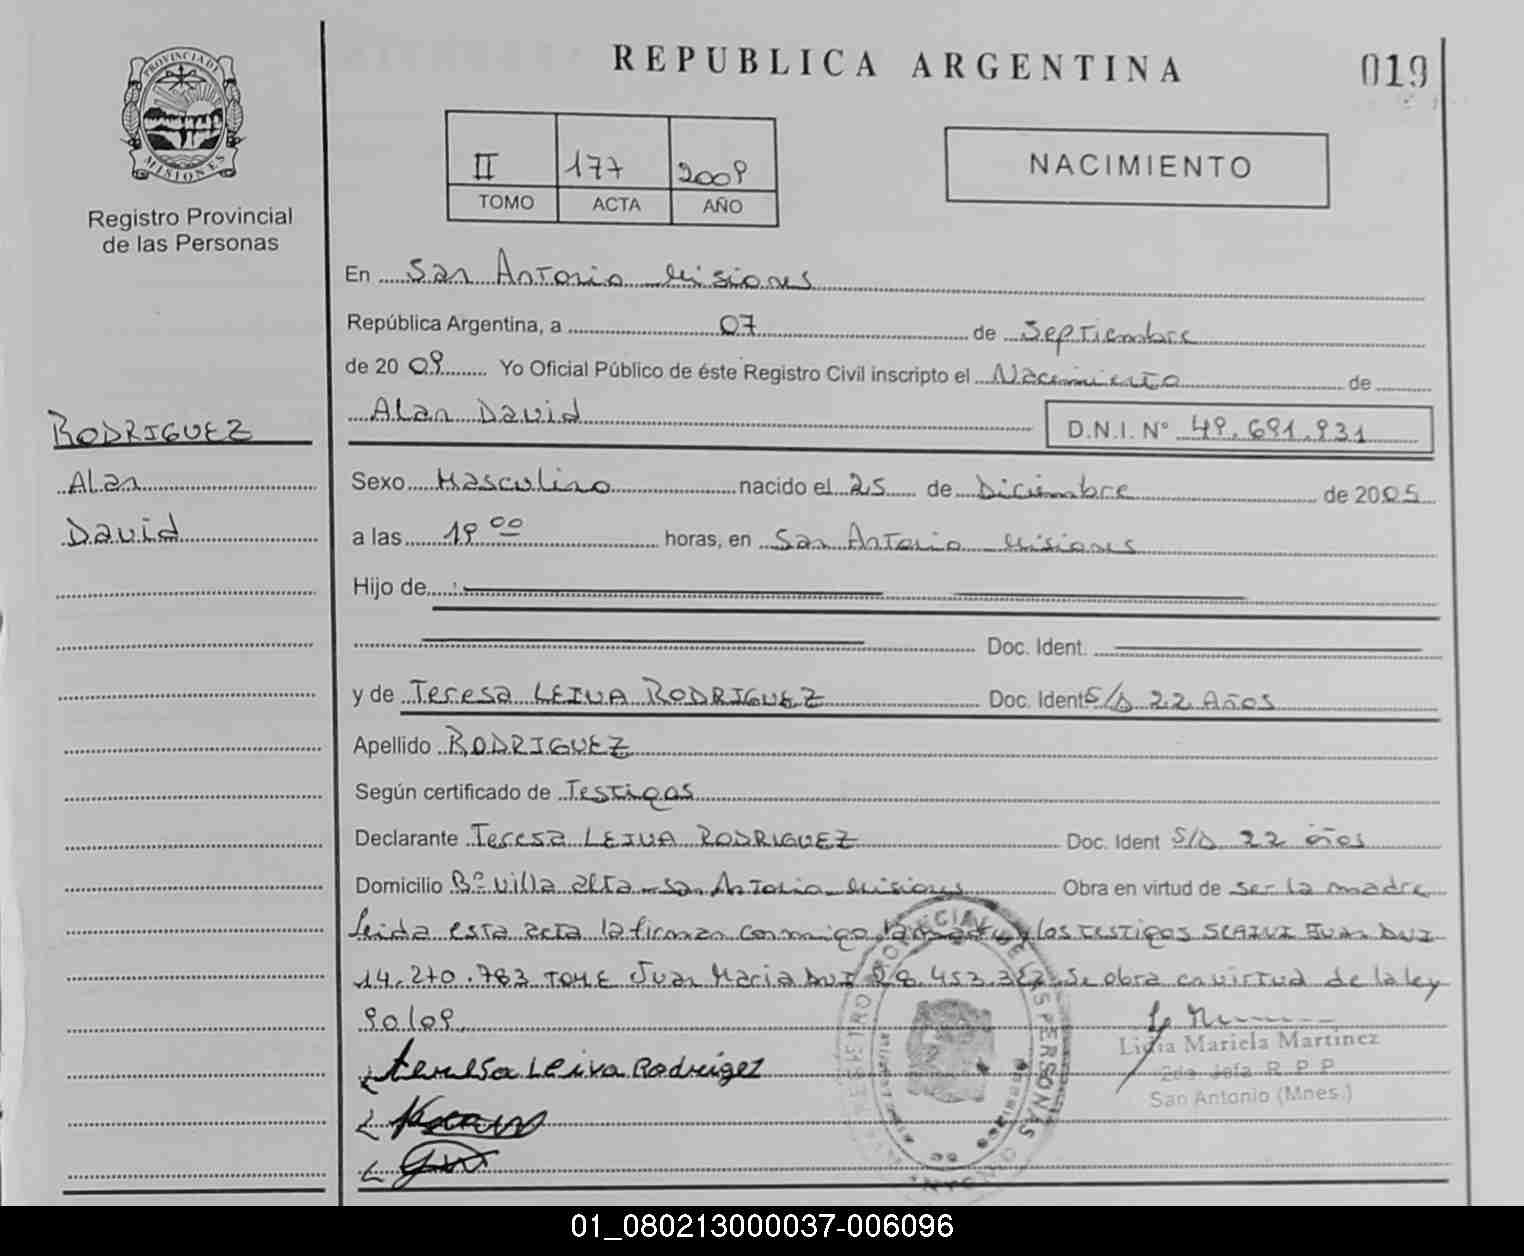 REPUBLICA ARGENTINA
019
PROVINCIA DE
MISIONES
Registro Provincial
de las Personas
II 177 2009
TOMO ACTA AÑO
NACIMIENTO
En San Antonio Misiones
República Argentina, a 07 de Septiembre
de 20 09 Yo Oficial Público de éste Registro Civil inscripto el Nacimiento de
Alan David D.N.I. Nº 49.691.931
RODRIGUEZ
Alan
David
Sexo Masculino nacido el 25 de Diciembre de 2005
a las 19 00 horas, en San Antonio Misiones
Hijo de
Doc. Ident.
y de Teresa LEIVA RODRIGUEZ Doc. Ident S/D 22 Años
Apellido RODRIGUEZ
Según certificado de Testigos
Declarante Teresa LEIVA RODRIGUEZ Doc. Ident S/D 22 años
Domicilio Bº Villa alta - San Antonio - Misiones Obra en virtud de ser la madre
Leida esta acta la firman conmigo la madre y los testigos Juan DNI
14.270.783 TOME Juan Maria DNI Se obra en virtud de la ley
90/09.
teresa Leiva Rodrigez
Lidia Mariela Martinez
2da. Jefa R. P. P.
San Antonio (Mnes.)
REGISTRO PROVINCIAL DE LAS PERSONAS
01_080213000037-006096